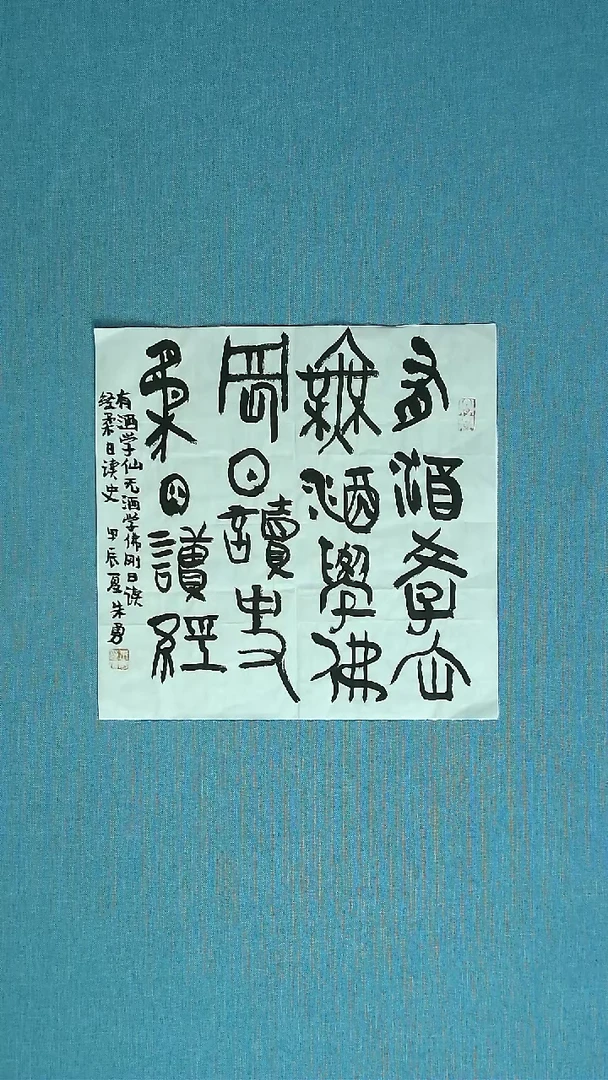 有酒学仙
無酒學佛
岡日讀史
柔日讀經
有酒学仙无酒学佛刚日读
经柔日读史 甲辰夏 朱勇